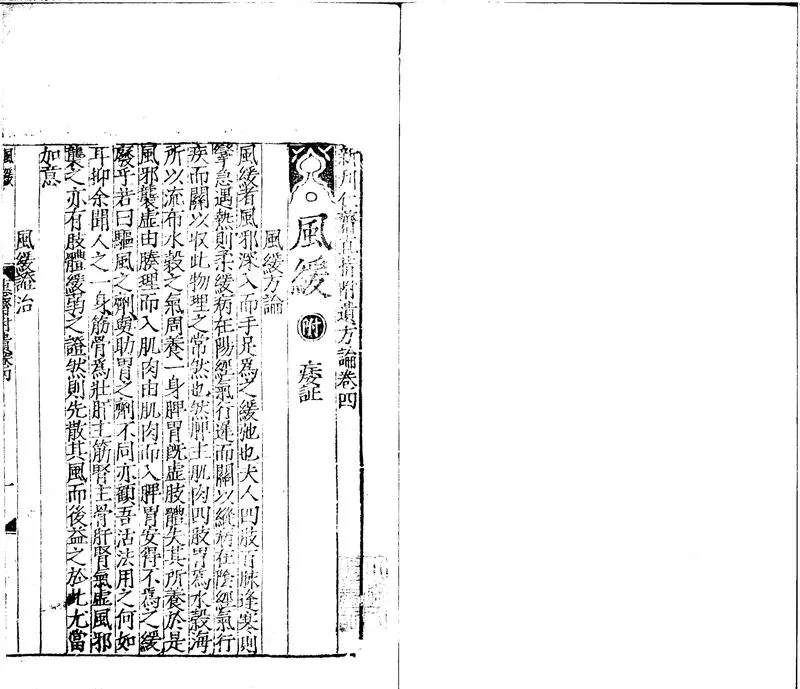 新刊仁齋直指附遺方論卷四
風緩 附 痿証
風緩方論
風緩者風邪深入而手足為之緩弛也夫人四肢百脉逢寒則
攣急遇熱則柔緩病在陽經氣行遲而關以縱病在陰經氣行
疾而關以収此物理之常然也然脾主肌肉四肢胃為水穀海
所以流布水穀之氣周養一身脾胃既虚肢體失其所養於是
風邪襲虚由腠理而入肌肉由肌肉而入脾胃安得不為之緩
廢乎若曰驅風之劑與助胃之劑不同亦顧吾活法用之何如
耳抑余聞人之一身筋骨為壯肝主筋腎主骨肝腎氣虚風邪
襲之亦有肢體緩弱之證然則先散其風而後益之於此尤當
如意
風緩證治
風緩
直指附遺卷四
一